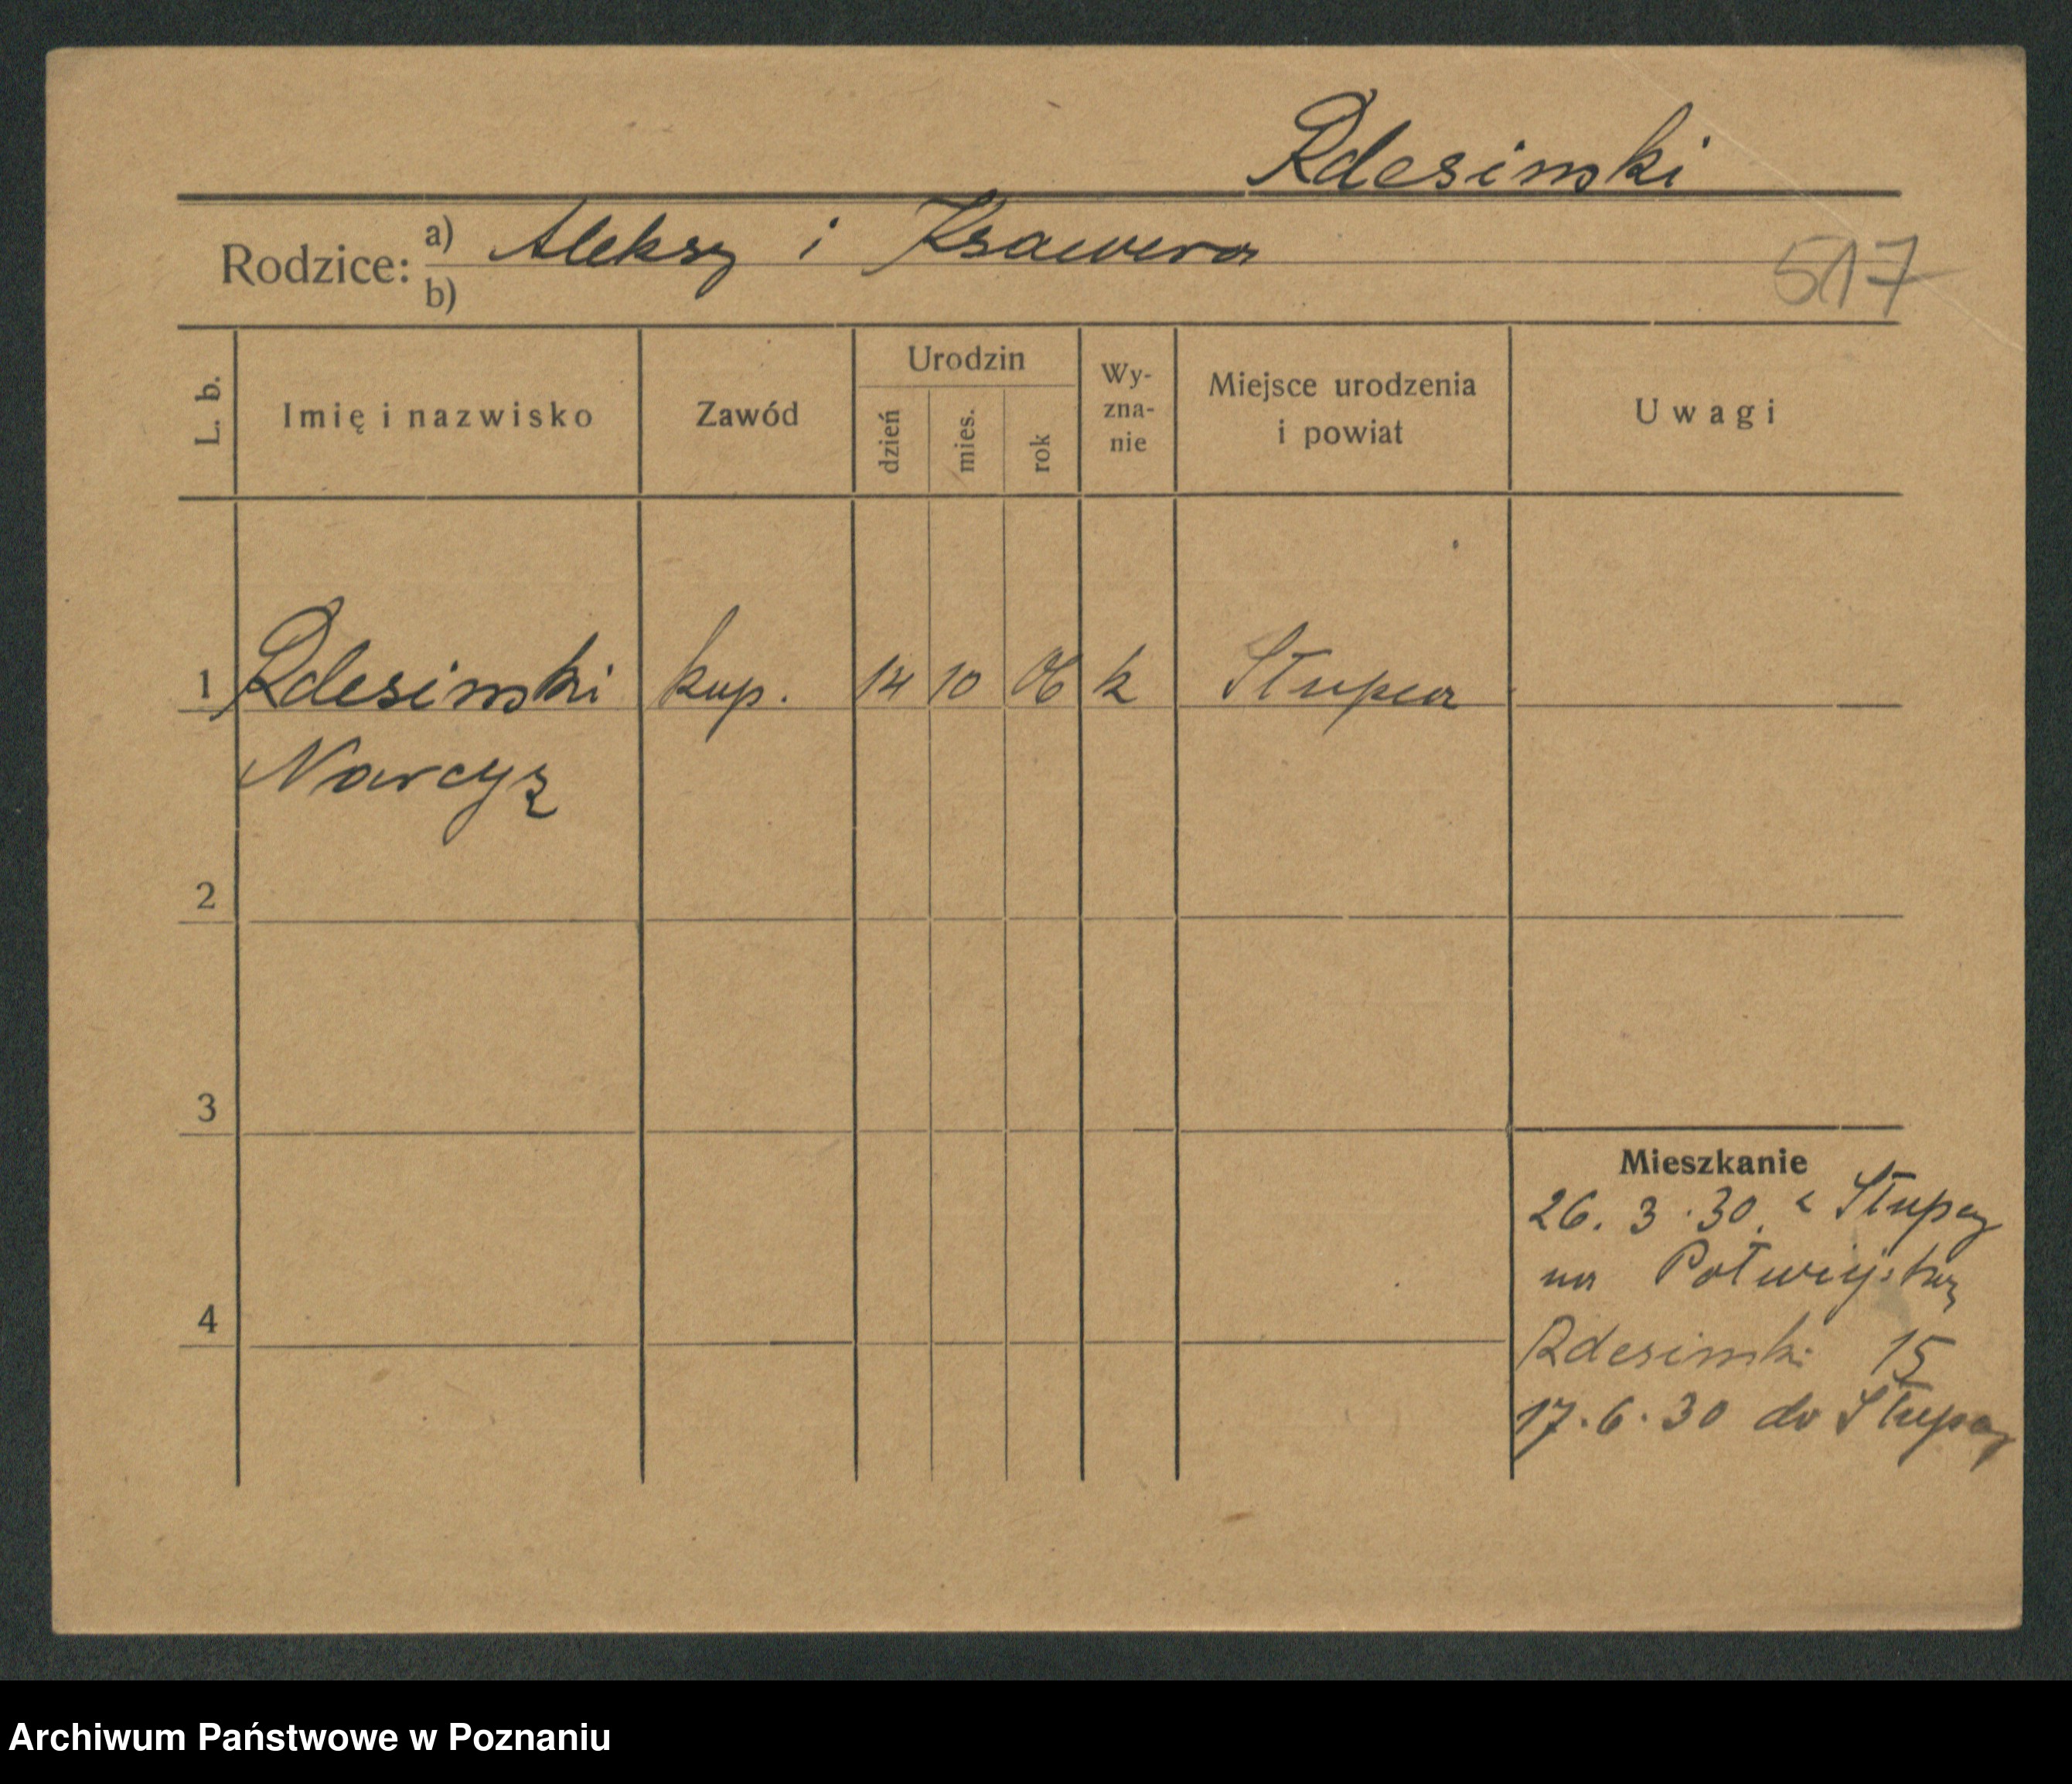 Rdesinski
Rodzice: a) Aleksy i Ksawera
b)
517
L. b. Imię i nazwisko Zawód Urodzin dzień mies. rok Wy-zna-nie Miejsce urodzenia i powiat Uwagi
1 Rdesinski kup. 14 10 06 k Słupca
Narcyz
2
3
4
Mieszkanie
26. 3. 30. z Słupcy
na Półwiejską
Rdesinski 15
17. 6. 30 do Słupcy
Archiwum Państwowe w Poznaniu